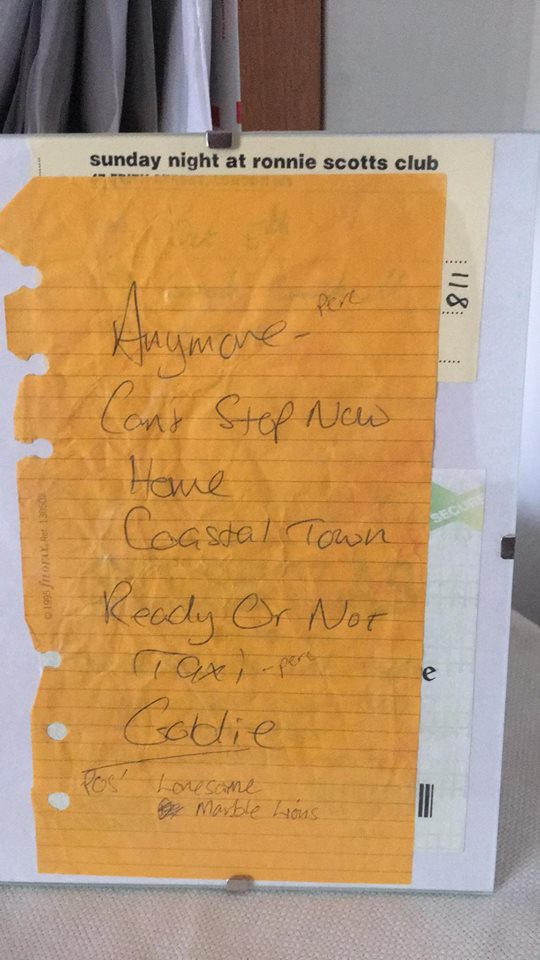 sunday night at ronnie scotts club
118
Anymore - perc
Can't Stop Now
Home
Coastal Town
SECURE
© 1995 FILOFAX Ref.
Ready Or Not
Taxi - perc
e
Goldie
Pos' Lonesome
Marble Lions